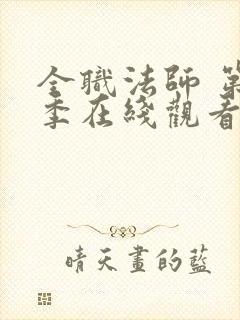 全職法師 第
季在綫觀看
晴天畫的藍